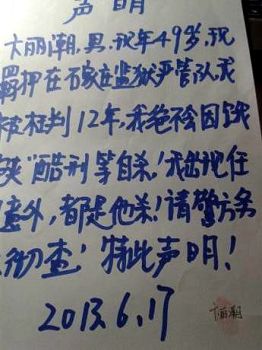 声明
卞丽潮,男,现年49岁,现
羁押在石家庄监狱严管队,我
被枉判12年,我绝不会因"饿
"酷刑等自杀!我出现任
意外,都是他杀!请警方务
彻查!特此声明!
2013.6.17
卞丽潮